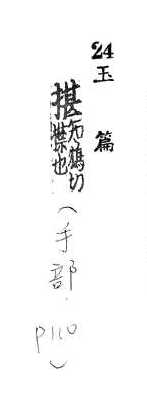 24
玉篇
揕知鴆切
也
(手部, P110)